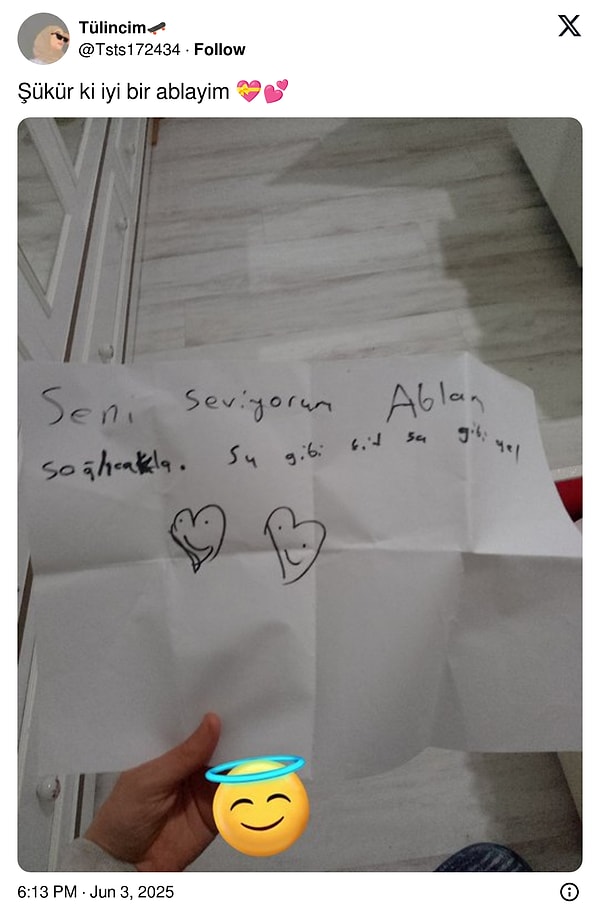 Tülincim🛹
@Tsts172434 · Follow
Şükür ki iyi bir ablayim 💝💕
Seni seviyorum Ablam
soğlıcakla. Su gibi git su gibi gel
6:13 PM · Jun 3, 2025